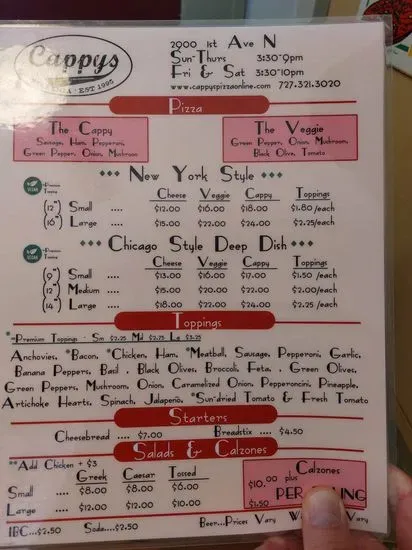 Cappys
EST 1995
2900 1st Ave N
Sun-Thurs 3:30-9pm
Fri & Sat 3:30-10pm
www.cappyspizzaonline.com 727.321.3020
Pizza
The Cappy
Sausage, Ham, Pepperoni,
Green Pepper, Onion, Mushroom
The Veggie
Green Pepper, Onion, Mushroom,
Black Olive, Tomato
New York Style
Cheese Veggie Cappy Toppings
(12") Small .... $12.00 $16.00 $18.00 $1.80/each
(16") Large .... $15.00 $22.00 $24.00 $2.25/each
VEGAN
Chicago Style Deep Dish
Cheese Veggie Cappy Toppings
(9") Small .... $13.00 $16.00 $17.00 $1.50 /each
(12") Medium .... $15.00 $20.00 $22.00 $2.00/each
(14") Large .... $18.00 $22.00 $24.00 $2.25 /each
Toppings
*=Premium Toppings - Sm $2.25 Md $2.75 La $3.25
Anchovies, *Bacon, *Chicken, Ham, *Meatball, Sausage, Pepperoni, Garlic,
Banana Peppers, Basil, Black Olives, Broccoli, Feta, , Green Olives,
Green Peppers, Mushroom, Onion, Caramelized Onion, Pepperoncini, Pineapple,
Artichoke Hearts, Spinach, Jalapeño, *Sun-dried Tomato & Fresh Tomato
Starters
Cheesebread .... $7.00 Breadstix .... $4.50
Salads & Calzones
**Add Chicken + $3
Greek Caesar Tossed
Small .... $8.00 $8.00 $6.00
Large .... $12.00 $12.00 $10.00
Calzones
$10.00 plus
$1.50 PER
IBC...$2.50 Soda....$2.50 Beer...Prices Vary Vary